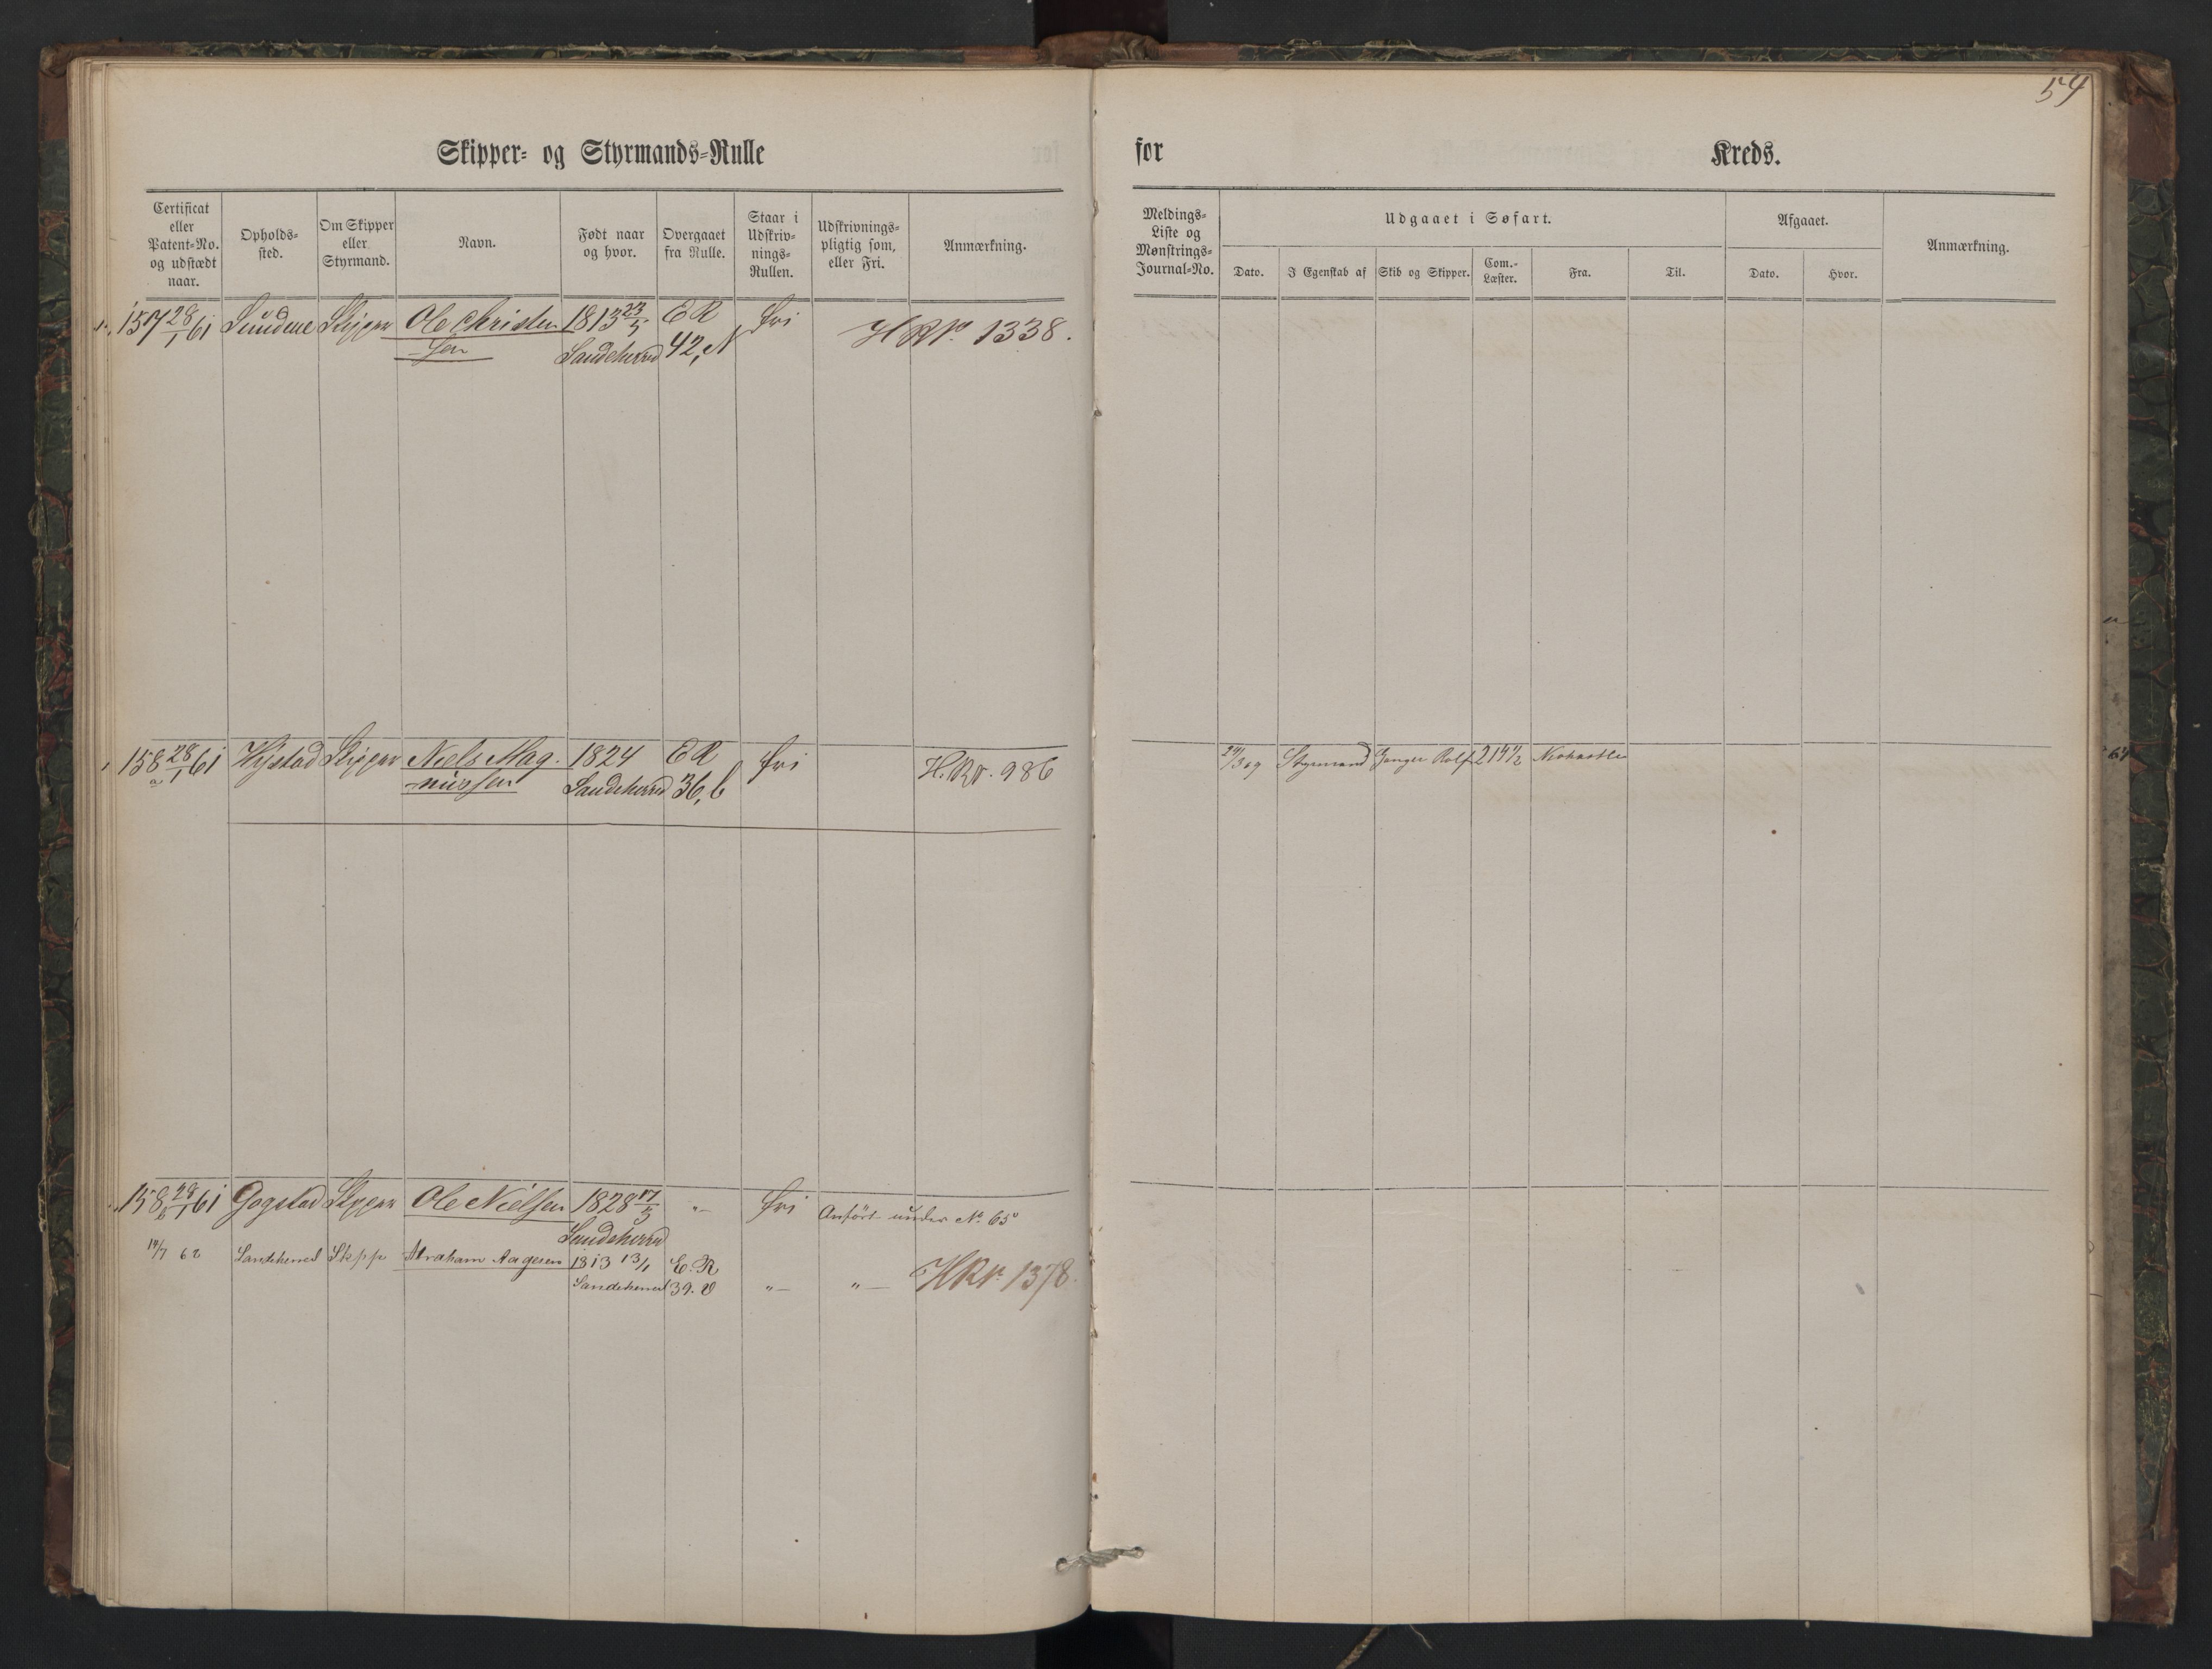 54
Skipper- og Styrmands-Rulle
for Kreds.
Certificat eller Patent-No. og udstædt naar.
Opholds-sted.
Om Skipper eller Styrmand.
Navn.
Født naar og hvor.
Overgaaet fra Rulle.
Staar i Udskriv-nings-Rullen.
Udskrivnings-pligtig som, eller Fri.
Anmærkning.
Meldings-Liste og Mønstrings-Journal-No.
Udgaaet i Søfart.
Dato.
I Egenskab af
Skib og Skipper.
Com.-Læster.
Fra.
Til.
Afgaaet.
Dato.
Hvor.
Anmærkning.
157 28/1 61 Sundene Skipper Ole Christen 1813 23/5 ER fri HRP. 1338.
sen Sandeherred 42, N
158 28/1 61 Hystad Skipper Niels Mag. 1824 ER fri H.Rv. 986
a nussen Sandeherred 36, b
24/3 69 Styrmand Ganger Rolf 214 1/2 Newkastle
158 28/1 61 Gogstad Skipper Ole Nielsen 1828 17/5 „- fri Anført under No. 65
b Sandeherred
14/7 62 Sandeherred Skpp Abraham Aagesen 1813 13/1 E. R
Sandeherred 39. V „- „- HRv. 1378.